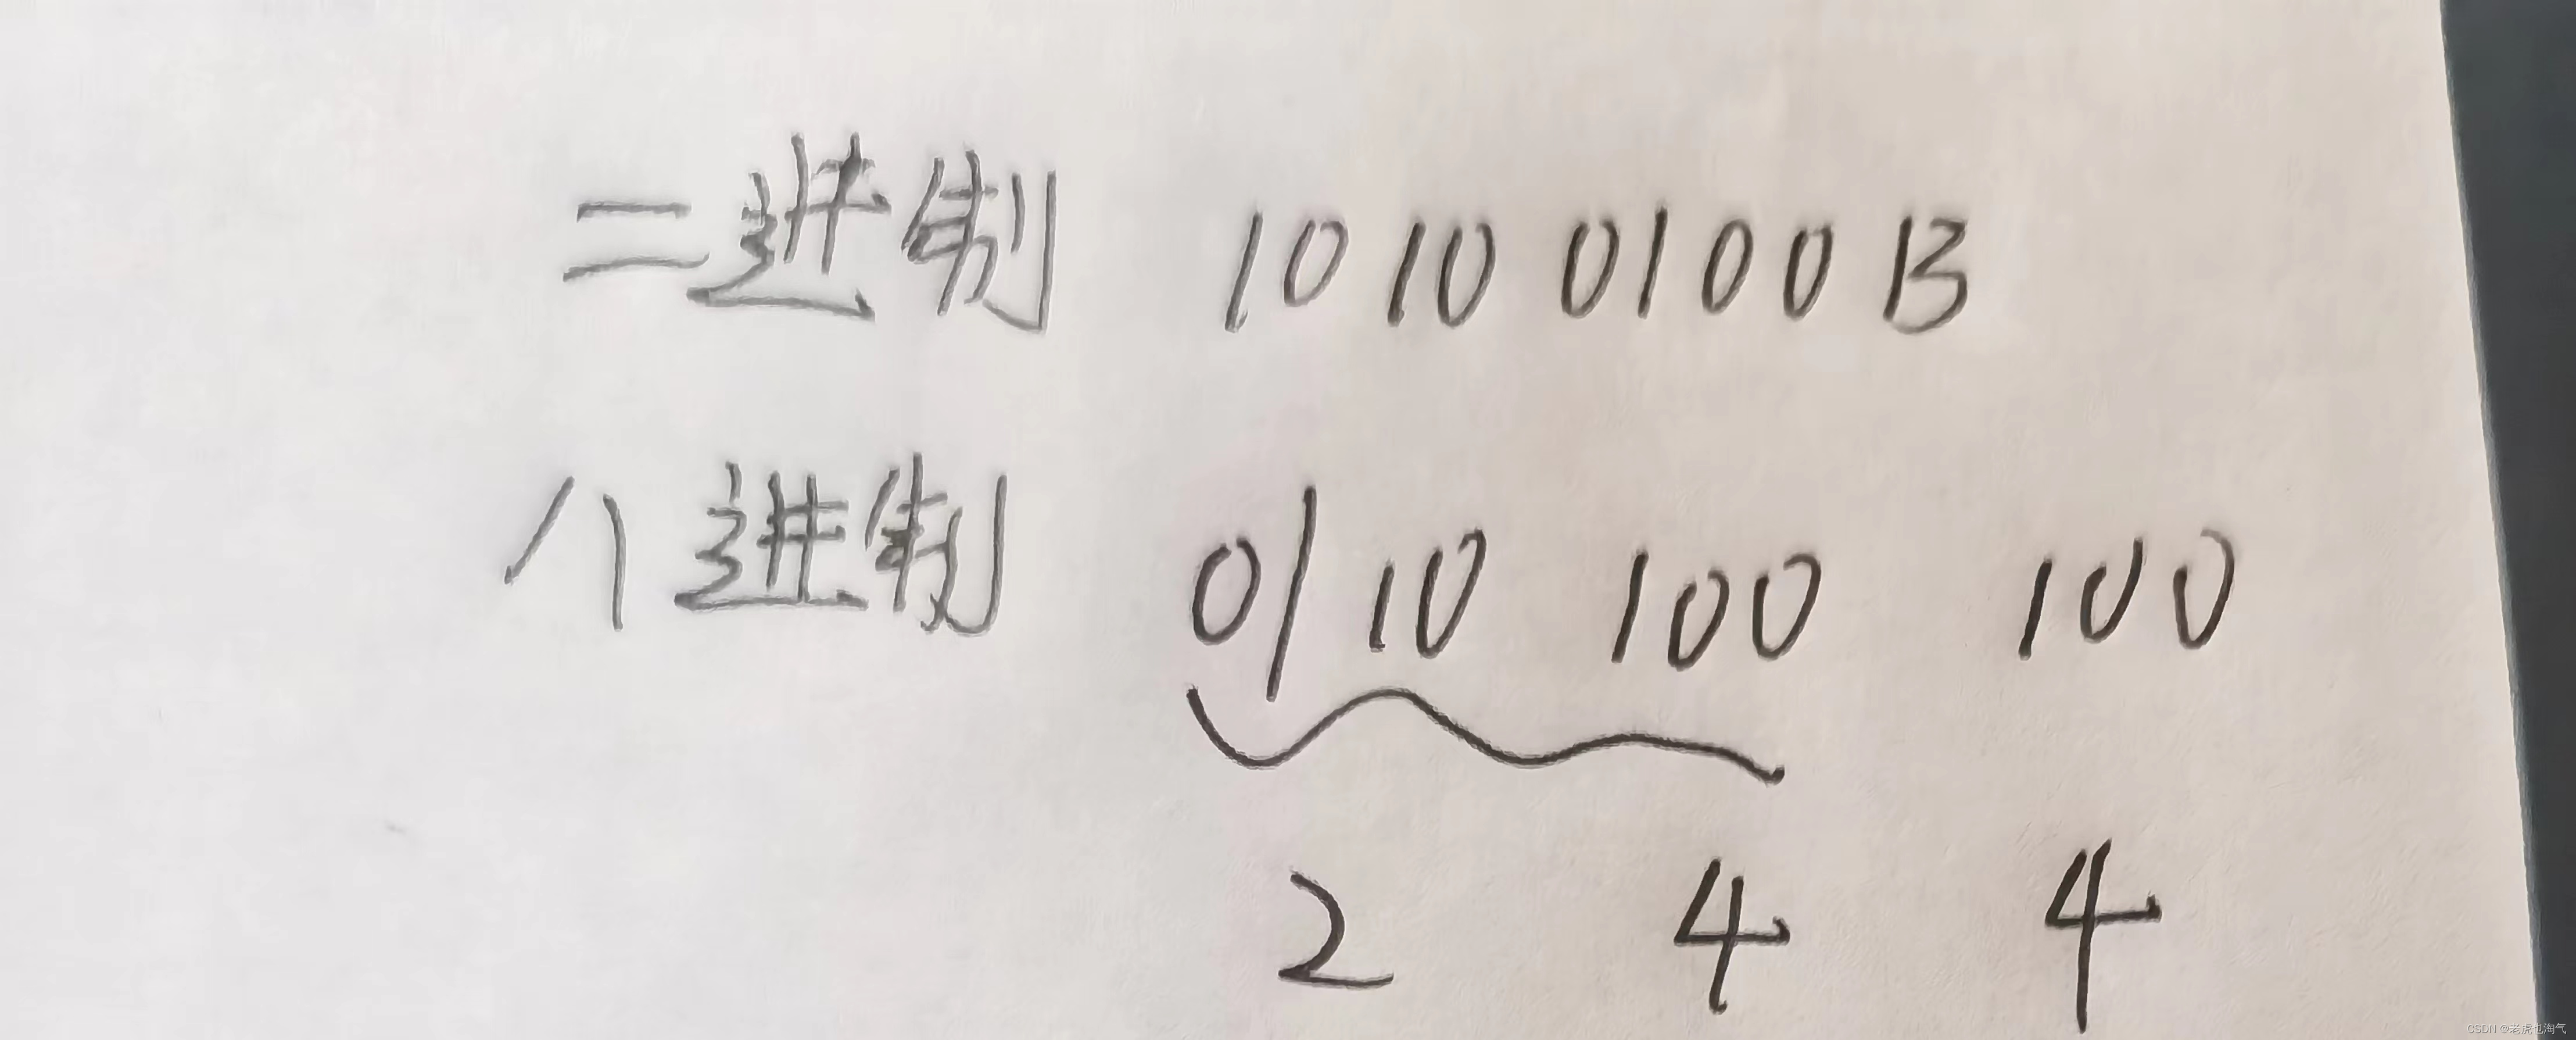 二进制 10100100B
八进制 0|10 100 100
2 4 4
CSDN @老虎也淘气